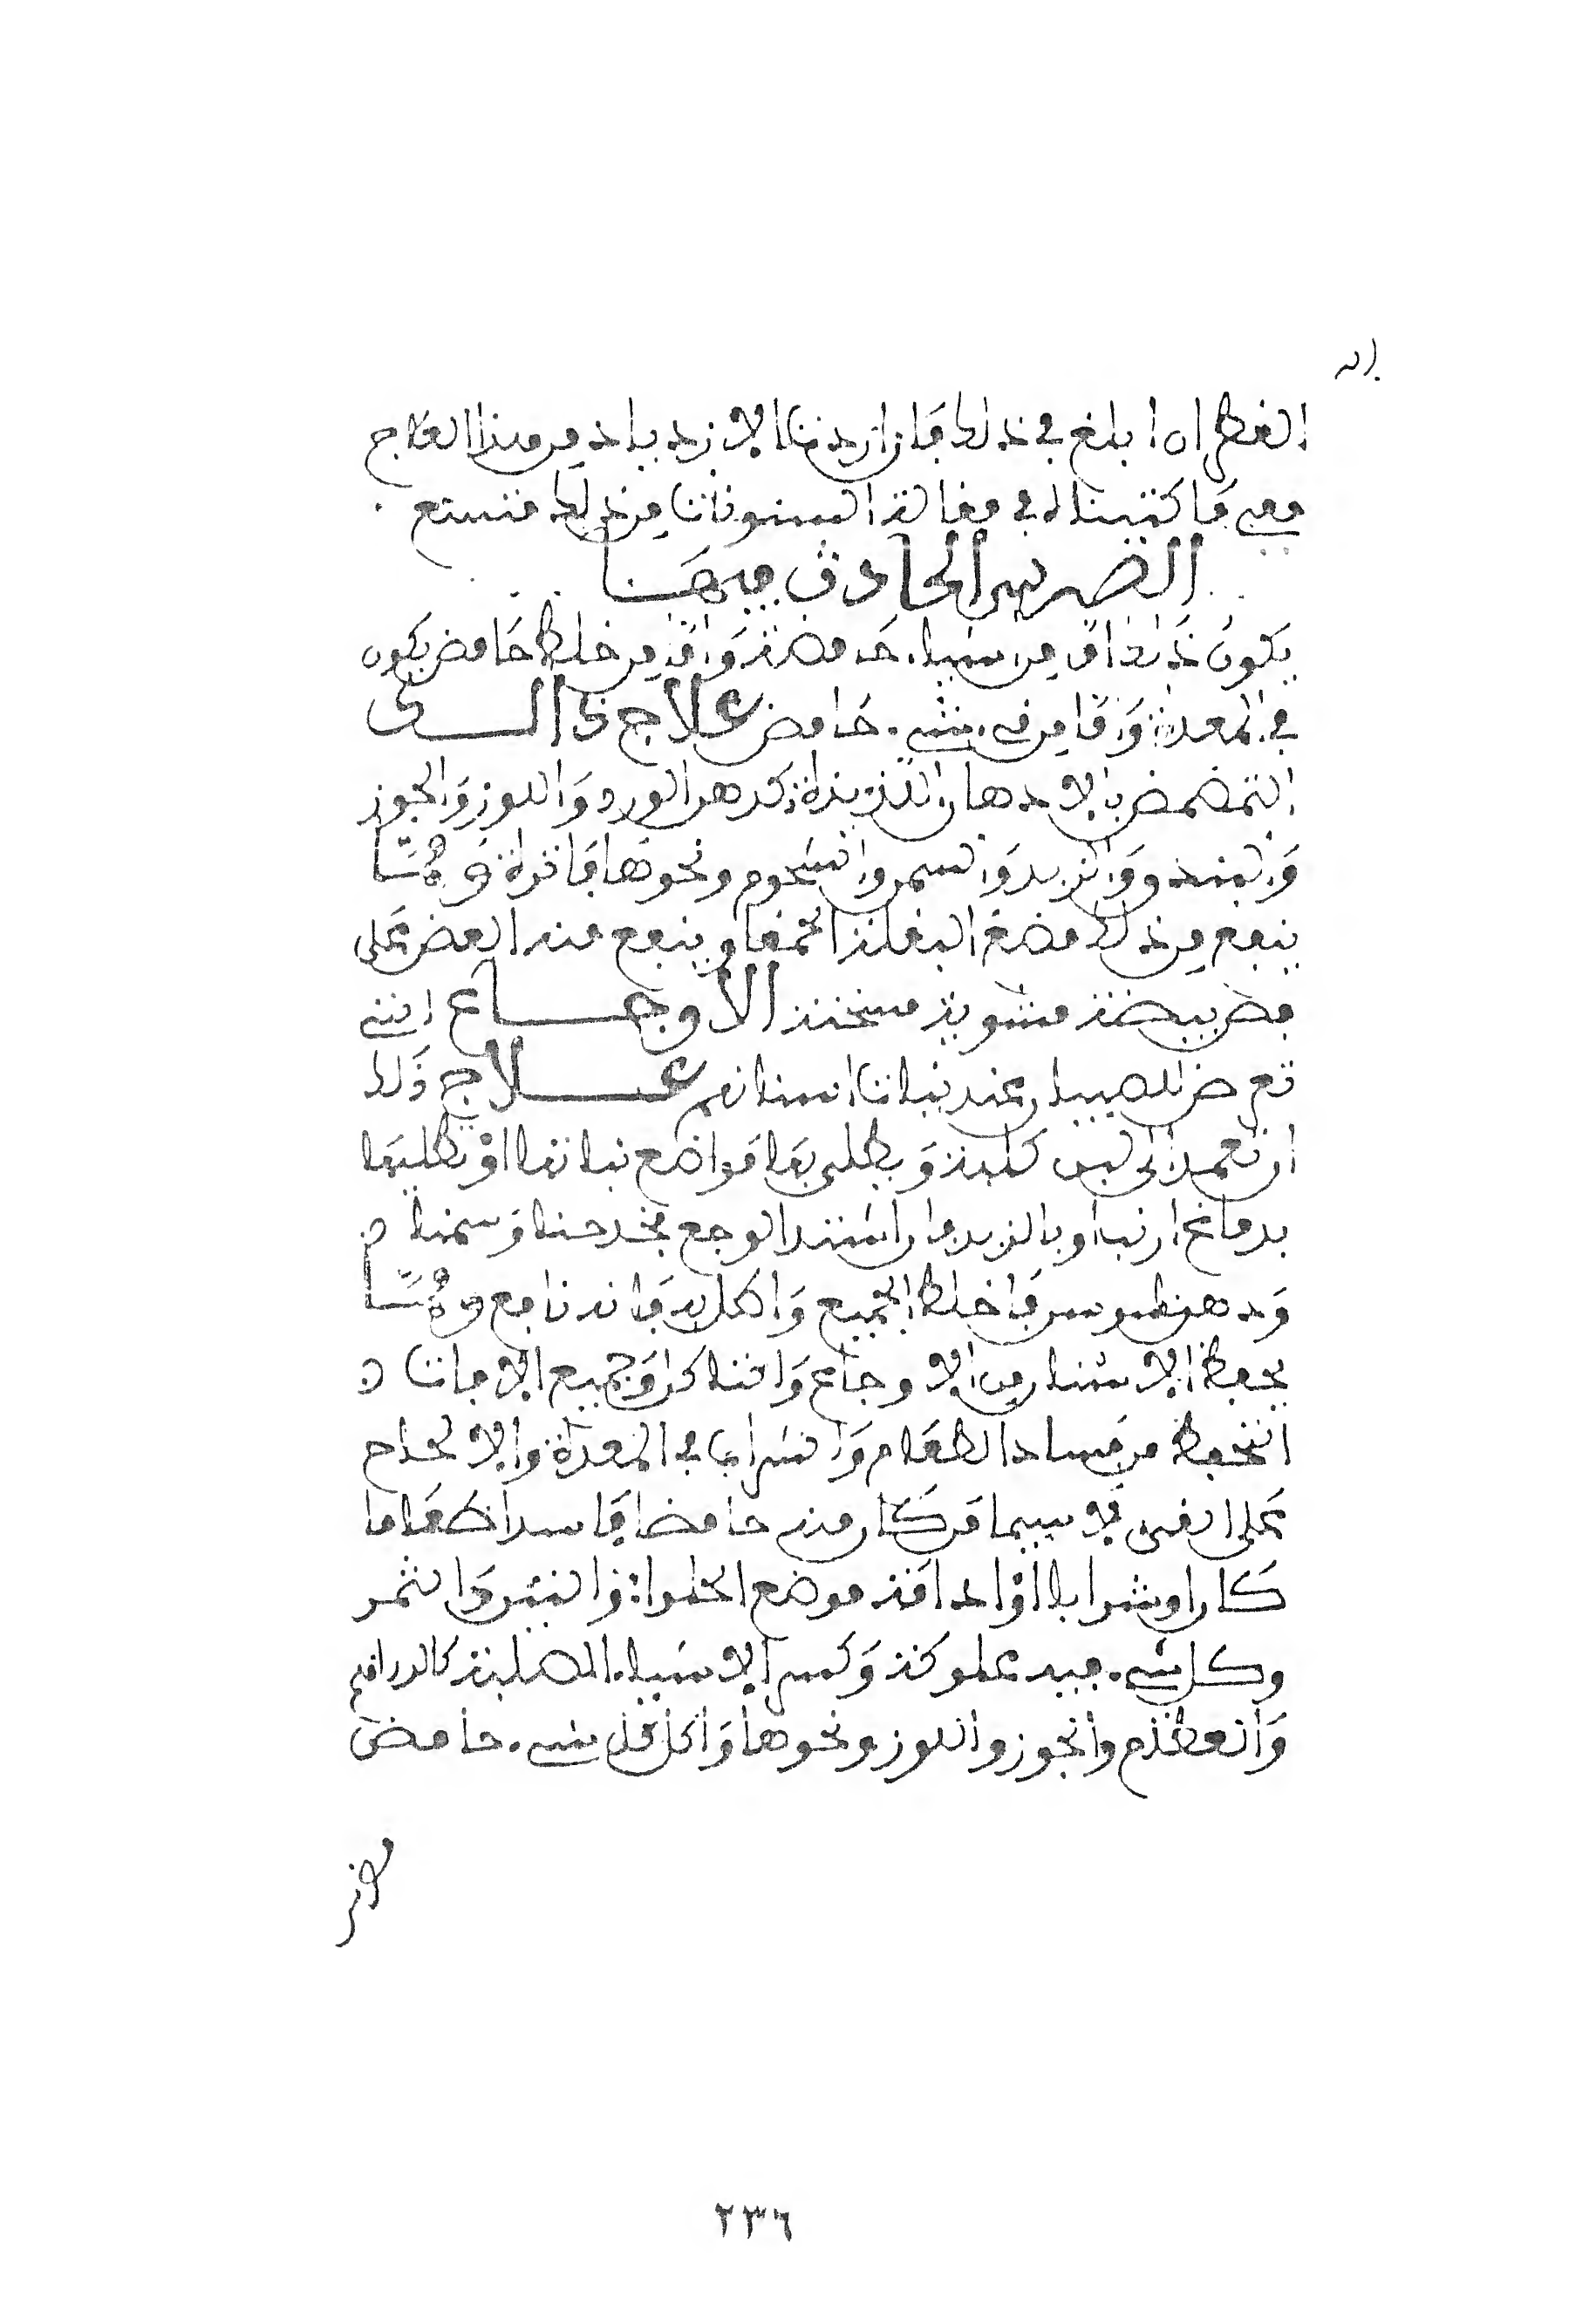 القطران ابلغ في ذلك فان اردت الازدياد من هذا العلاج
ففي ما كتبناه في مقالة السنونات من ذلك متسع
الضرس الحادث فيها
يكون ذلك اما من اشياء حامضة واما من خلط حامض يكون
في المعدة واما من قيء شيء حامض علاج ذلك
التمضمض بالادهان اللذيذة كدهن الورد واللوز والجوز
والبندق والزبد والسمن والشحوم ونحوها فاترة ومما
ينفع من ذلك مضغ البقلة الحمقا وينفع منه العض على
مض بيضة مشوية سخنة الاوجاع التي
تعرض للصبيان عند نبات اسنانهم علاج ذلك
ان تعمد الى لبن كلبة ويطلى بها مواضع نباتها او تطليها
بدماغ ارنب او بالزبد فان اشتد الوجع فخذ حنا وسمنا
ودهن سوسن فاخلط الجميع واطل به فانه نافع ومما
يحفظ الاسنان من الاوجاع والتاكل وجميع الافات
التحفظ من فساد الطعام والشراب في المعدة والالحاح
على القيء لا سيما من كان منه حامضا فاسدا طعاما
كان او شرابا او ادامة موضع الحلواء والتين والتمر
وكل شيء فيه علوكة وكسر الاشياء الصلبة كالدراهم
والعظام والجوز واللوز ونحوها واكل كل شيء حامض
٢٣٦